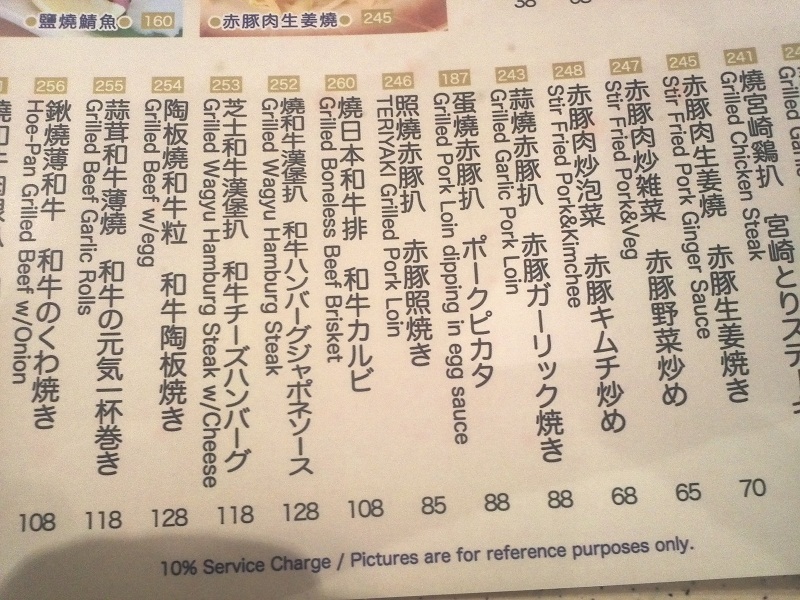 鹽燒鯖魚 160
赤豚肉生姜燒 245
38
241
燒宮崎鷄扒 宮崎とりステーキ
Grilled Chicken Steak
245
赤豚肉生姜燒 赤豚生姜焼き
Stir Fried Pork Ginger Sauce
70
247
赤豚肉炒雑菜 赤豚野菜炒め
Stir Fried Pork&Veg
65
248
赤豚肉炒泡菜 赤豚キムチ炒め
Stir Fried Pork&Kimchee
68
243
蒜燒赤豚扒 赤豚ガーリック焼き
Grilled Garlic Pork Loin
88
187
蛋燒赤豚扒 ポークピカタ
Grilled Pork Loin dipping in egg sauce
88
246
照燒赤豚扒 赤豚照焼き
TERIYAKI Grilled Pork Loin
85
260
燒日本和牛排 和牛カルビ
Grilled Boneless Beef Brisket
108
252
燒和牛漢堡扒 和牛ハンバーグジャポネソース
Grilled Wagyu Hamburg Steak
128
253
芝士和牛漢堡扒 和牛チーズハンバーグ
Grilled Wagyu Hamburg Steak w/Cheese
118
254
陶板燒和牛粒 和牛陶板焼き
Grilled Beef w/egg
128
255
蒜茸和牛薄燒 和牛の元気一杯巻き
Grilled Beef Garlic Rolls
118
256
鍬燒薄和牛 和牛のくわ焼き
Hoe-Pan Grilled Beef w/Onion
108
10% Service Charge / Pictures are for reference purposes only.